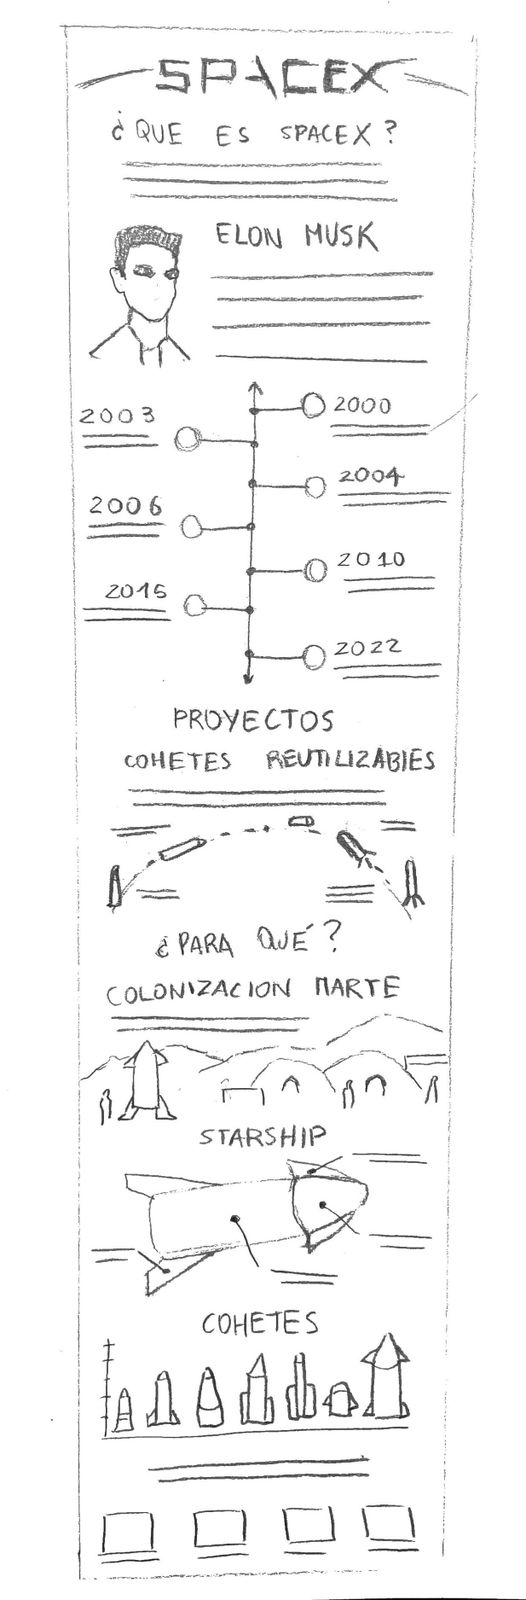 SPACEX
¿QUE ES SPACEX?
ELON MUSK
2000
2003
2004
2006
2010
2015
2022
PROYECTOS
COHETES REUTILIZABLES
¿PARA QUÉ?
COLONIZACION MARTE
STARSHIP
COHETES